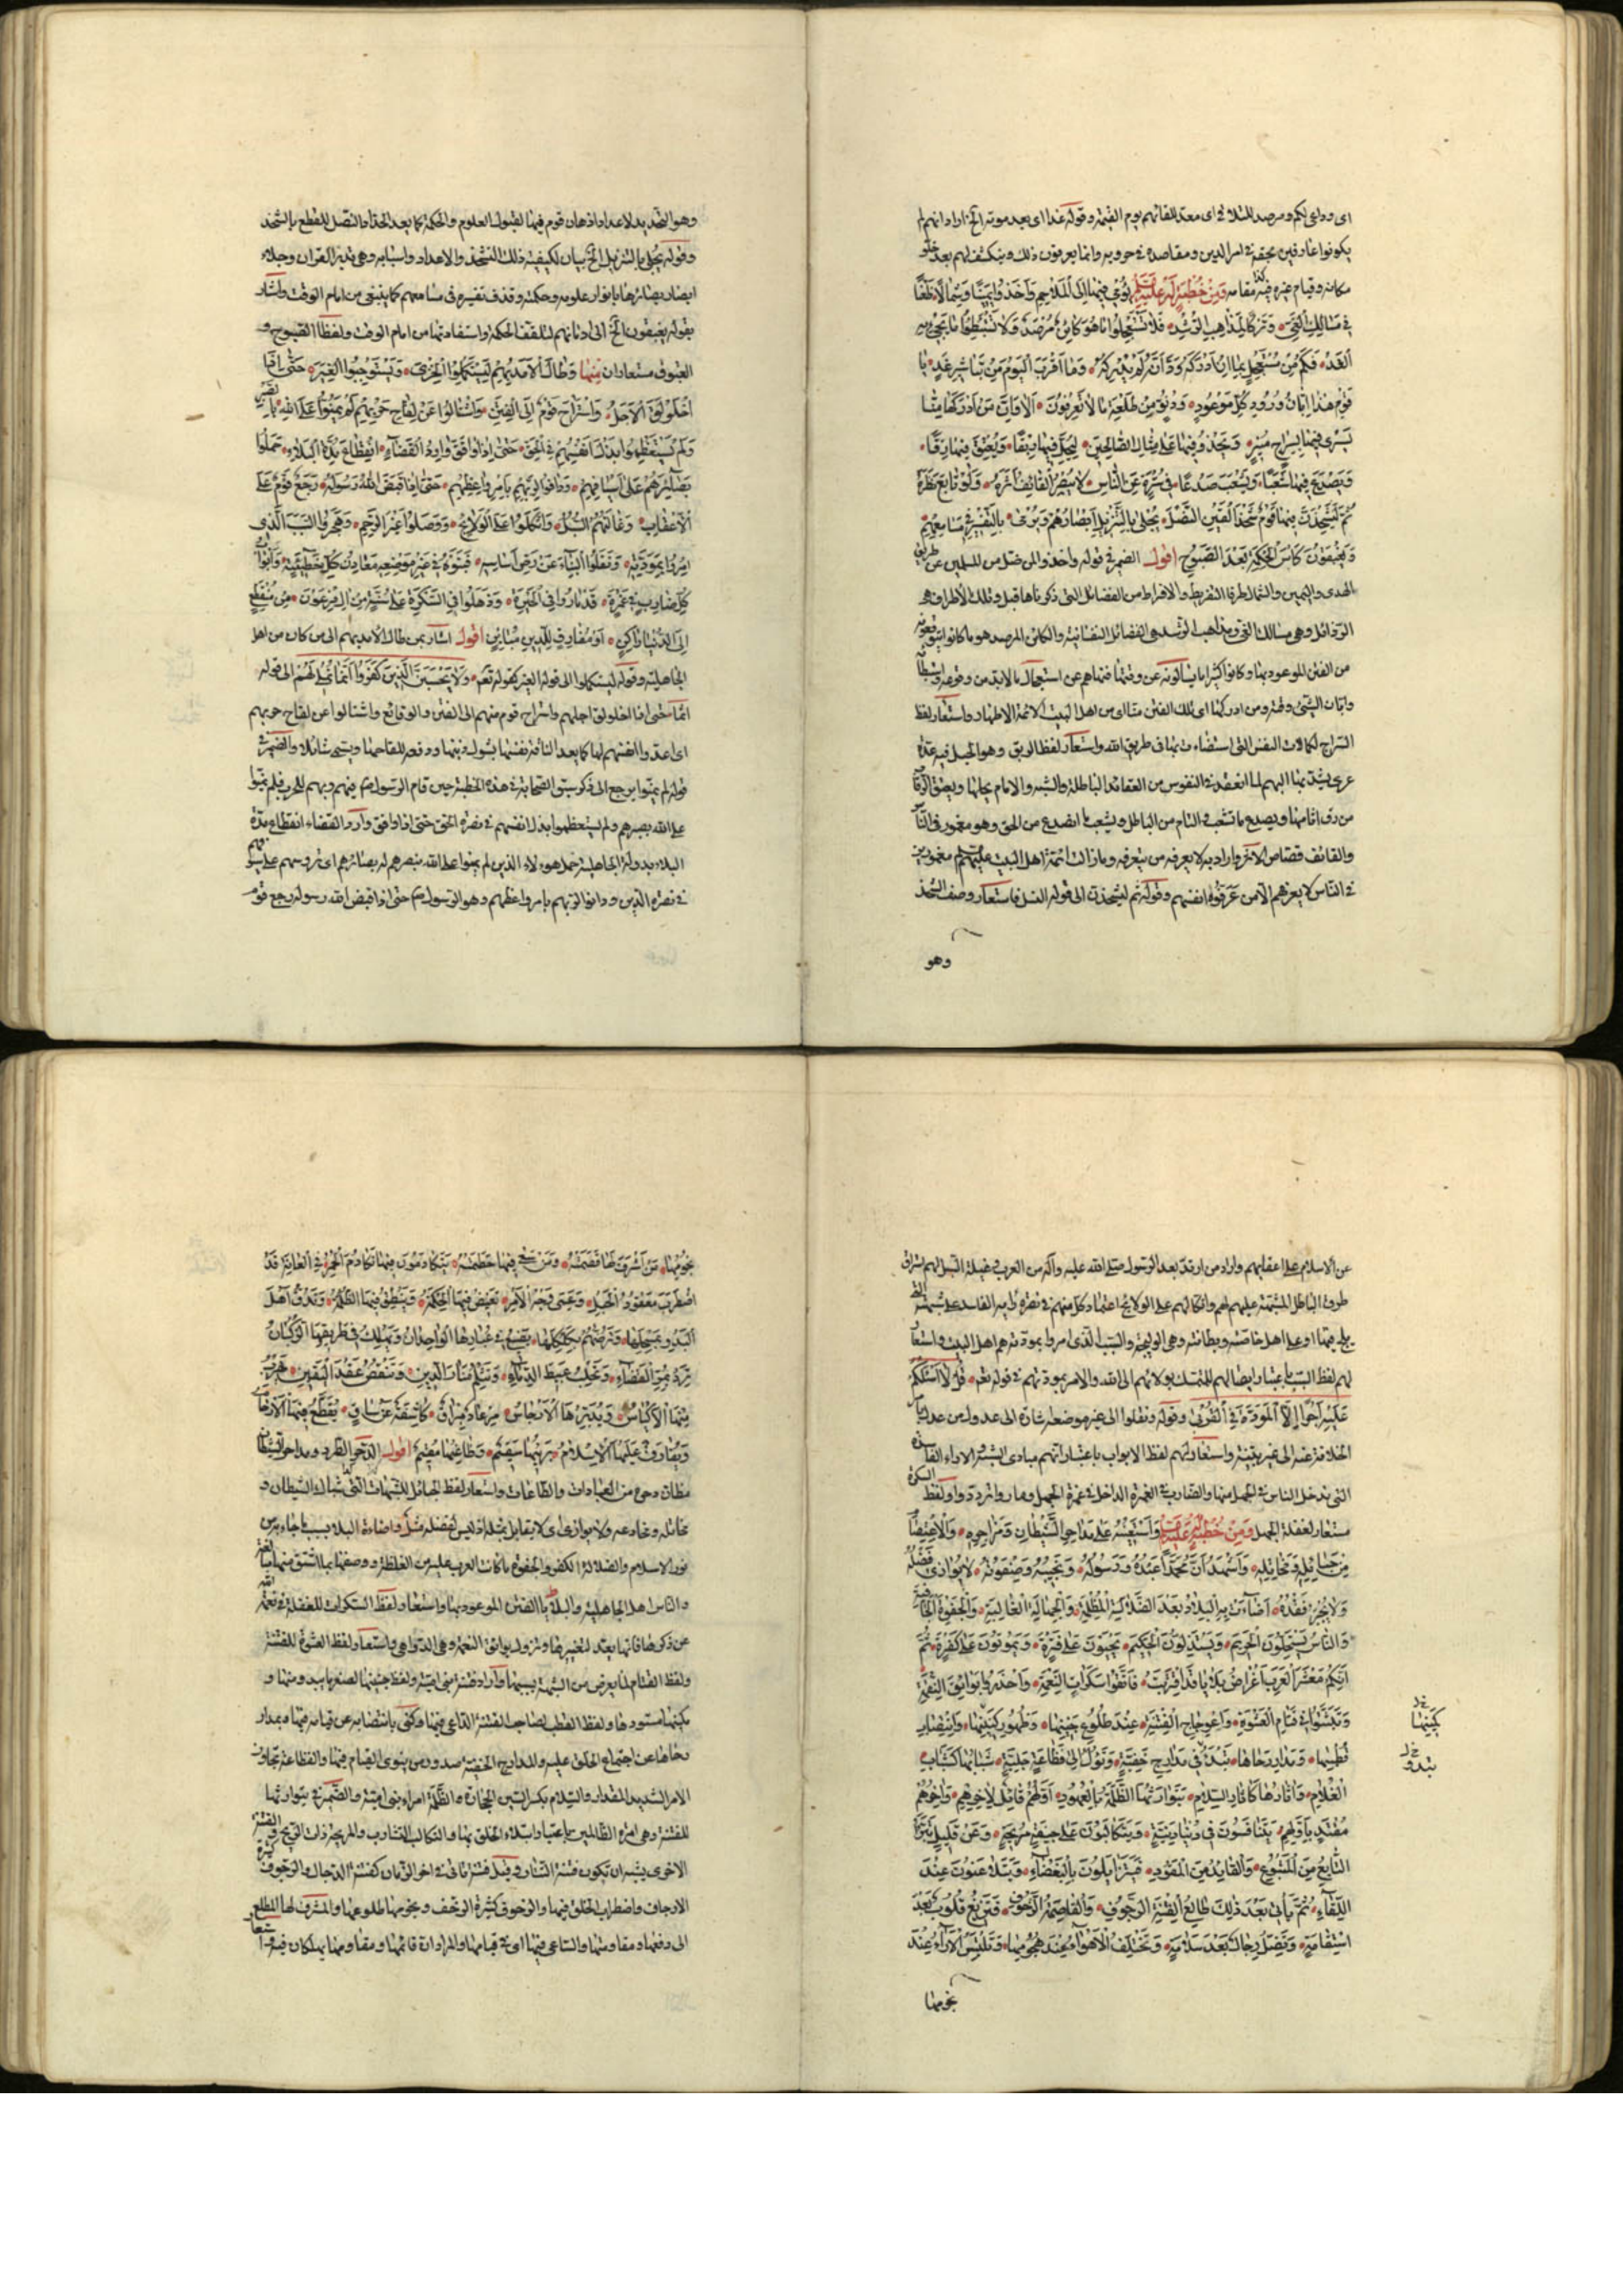 اى وداعى لكم ومرصد للتلاقى اى معد للقائهم يوم القيمة وقوله غدا اى بعد موته الخ اراد انهم لم
يكونوا عارفين بحقه فى امر الدين ومقاصده فى حروبه وانما يعرفون ذلك وينكشف لهم بعد خلو
مكانه وقيام غيره فيه مقامه وَمِنْ خُطْبَةٍ لَهُ عَلَيْهِ السَّلَمُ يُومِي فِيهَا اِلَى الْمَلَاحِمِ وَاَخَذُوا يَمِينًا وَشِمَالًا ظَعْنًا
فِى مَسَالِكِ الْغَىِّ وَتَرْكًا لِمَذَاهِبِ الرُّشْدِ فَلَا تَسْتَعْجِلُوا مَا هُوَ كَائِنٌ مُرْصَدٌ وَلَا تَسْتَبْطِئُوا مَا يَجِىءُ بِهِ
الْغَدُ فَكَمْ مِنْ مُسْتَعْجِلٍ بِمَا اِنْ اَدْرَكَهُ وَدَّ اَنَّهُ لَمْ يُدْرِكْهُ وَمَا اَقْرَبَ الْيَوْمَ مِنْ تَبَاشِيرِ غَدٍ يَا
قَوْمِ هٰذَا اِبَّانُ وُرُودِ كُلِّ مَوْعُودٍ وَدُنُوٍّ مِنْ طَلْعَةِ مَا لَا تَعْرِفُونَ اَلَا وَاِنَّ مَنْ اَدْرَكَهَا مِنَّا
يَسْرِى فِيهَا بِسِرَاجٍ مُنِيرٍ وَيَحْذُو فِيهَا عَلَى مِثَالِ الصَّالِحِينَ لِيَحُلَّ فِيهَا رِبْقًا وَيُعْتِقَ فِيهَا رِقًّا
وَيَصْدَعَ شَعْبًا وَيَشْعَبَ صَدْعًا فِى سُتْرَةٍ عَنِ النَّاسِ لَا يُبْصِرُ الْقَائِفُ اَثَرَهُ وَلَوْ تَابَعَ نَظَرَهُ
ثُمَّ لَيُشْحَذَنَّ فِيهَا قَوْمٌ شَحْذَ الْقَيْنِ النَّصْلَ يُجْلَى بِالتَّنْزِيلِ اَبْصَارُهُمْ وَيُرْمَى بِالتَّفْسِيرِ فِى مَسَامِعِهِمْ
وَيُغْبَقُونَ كَاْسَ الْحِكْمَةِ بَعْدَ الصَّبُوحِ اقول الضمير فى قوله واخذوا لمن ضل من المسلمين عن طريق
الهدى واليمين والشمال طرفا التفريط والافراط من الفضائل التى ذكرناها قبل وتلك الأطراف هى
الرذائل وهى مسالك الغى ومذاهب الرشد هى الفضائل النفسانية والكائن المرصد هو ما كانوا يتوقعونه
من الفتن الموعود بها وكانوا كثيرا ما يسألونه عن وقتها فنهاهم عن استعجال ما لابد من وقوعه واستبطائه
وابان الشىء وقته ومن ادركها اى تلك الفتن منا اى من اهل البيت الائمة الاطهار واستعار لفظ
السراج لكمالات النفس التى استضاءت بها فى طريق الله واستعار لفظ الربق وهو الحبل فيه عدة
عرى يشد بها البهم لما انعقد فى النفوس من العقائد الباطلة والشبه والامام يحلها ويعتق الرقاب
من رق اثامها ويصدع ما تشعب والتام من الباطل ويشعب ما انصدع من الحق وهو مغمور فى الناس
والقائف قصاص الاثر واراد به لا يعرفه من يتعرفه وما زالت ائمة اهل البيت عليهم السلم مغمورين
فى الناس لا يعرفهم الا من عرفوه انفسهم وقوله ثم ليشحذن الى قوله النصل فاستعار وصف الشحذ
وهو
وهو التحديد لاعداد اذهان قوم فيها لقبول العلوم والحكمة كما يعد الحداد النصل للقطع بالشحذ
وقوله يجلى بالتنزيل الخ بيان لكيفية ذلك الشحذ والاعداد واسبابه وهى تدبر القران وجلاء
ابصار بصائرها بانوار علومه وحكمته وقذف تفسيره فى مسامعهم كما ينبغى من امام الوقت واشار
بقوله يغبقون الخ الى ادمانهم لتلقف الحكمة واستفادتها من امام الوقت ولفظا الصبوح و
الغبوق مستعاران مِنْهَا وَطَالَ الْاَمَدُ بِهِمْ لِيَسْتَكْمِلُوا الْخِزْىَ وَيَسْتَوْجِبُوا الْغِيَرَ حَتَّى اِذَا
اخْلَوْلَقَ الْاَجَلُ وَاسْتَرَاحَ قَوْمٌ اِلَى الْفِتَنِ وَاشْتَالُوا عَنْ لِقَاحِ حَرْبِهِمْ لَمْ يَمُنُّوا عَلَى اللهِ بِالصَّبْرِ
وَلَمْ يَسْتَعْظِمُوا بَذْلَ اَنْفُسِهِمْ فِى الْحَقِّ حَتَّى اِذَا وَافَقَ وَارِدُ الْقَضَاءِ انْقِطَاعَ مُدَّةِ الْبَلَاءِ حَمَلُوا
بَصَائِرَهُمْ عَلَى اَسْيَافِهِمْ وَدَانُوا لِرَبِّهِمْ بِاَمْرِ وَاعِظِهِمْ حَتَّى اِذَا قَبَضَ اللهُ رَسُولَهُ رَجَعَ قَوْمٌ عَلَى
الْاَعْقَابِ وَغَالَتْهُمُ السُّبُلُ وَاتَّكَلُوا عَلَى الْوَلَائِجِ وَوَصَلُوا غَيْرَ الرَّحِمِ وَهَجَرُوا السَّبَبَ الَّذِى
اُمِرُوا بِمَوَدَّتِهِ وَنَقَلُوا الْبِنَاءَ عَنْ رَصِّ اَسَاسِهِ فَبَنَوْهُ فِى غَيْرِ مَوْضِعِهِ مَعَادِنُ كُلِّ خَطِيئَةٍ وَاَبْوَابُ
كُلِّ ضَارِبٍ فِى غَمْرَةٍ قَدْ مَارُوا فِى الْحَيْرَةِ وَذَهَلُوا فِى السَّكْرَةِ عَلَى سُنَّةٍ مِنْ اٰلِ فِرْعَوْنَ مِنْ مُنْقَطِعٍ
اِلَى الدُّنْيَا رَاكِنٍ اَوْ مُفَارِقٍ لِلدِّينِ مُبَايِنٍ اقول اشار بمن طال الامد بهم الى من كان من اهل
الجاهلية وقوله ليستكملوا الى قوله الغير كقوله تعم وَلَا يَحْسَبَنَّ الَّذِينَ كَفَرُوا اَنَّمَا نُمْلِى لَهُمْ الى قوله
اثما حتى اذا اخلولق اجلهم واستراح قوم منهم الى الفتن والوقائع واشتالوا عن لقاح حربهم
اى اعدوا انفسهم لها كما يعد الناقة نفسها بشول ذنبها ورفعه للقاحها ويسمى شائلا والضمير فى
قوله لم يمنوا يرجع الى ذكر سبق الصحابة فى هذه الخطبة حين قام الرسول ص فيهم وبهم للحرب فلم يمنوا
على الله بصبرهم ولم يستعظموا بذل انفسهم فى نصرة الحق حتى اذا وافق وارد القضاء انقطاع مدة
البلاء بدولة الجاهلية حمل هولاء الذين لم يمنوا على الله بنصرهم له بصائرهم اى
فى نصرة الدين ودانوا لربهم بامر واعظهم وهو الرسول ص حتى اذا قبض الله رسوله رجع قوم
عن الاسلام على اعقابهم واراد من ارتد بعد الرسول صلى الله عليه وآله من العرب
طرق الباطل المشتبهة عليهم لهم واتكالهم على الولائج اعتماد كل منهم فى نصرة رايه الفاسد على
اهل خاصته وبطانته وهى الوليجة والسبب الذى امروا بمودته هم اهل البيت واستعار
لهم لفظ السبب باعتبار ايصالهم للمتمسك بولائهم الى الله والامر بمودتهم فى قوله تعم قُلْ لَا اَسْئَلُكُمْ
عَلَيْهِ اَجْرًا اِلَّا الْمَوَدَّةَ فِى الْقُرْبَى وقوله ونقلوا الى غير موضعه اشارة الى عدول من عدل
الخلافة عنه الى غير بقيته واستعار لهم لفظ الابواب باعتبار انهم مبادى الشبه والاراء الفاسدة
التى تدخل الناس فى الجهل منها والضارب فى الغمرة الداخل فى غمرة الجهل وماروا ترددوا ولفظ السكرة
مستعار لغفلة الجهل وَمِنْ خُطْبَةٍ لَهُ عَلَيْهِ السَّلَمُ وَاَسْتَعِينُهُ عَلَى مَدَاحِرِ الشَّيْطَانِ وَمَزَاجِرِهِ وَالِاعْتِصَامِ
مِنْ حَبَائِلِهِ وَمَخَاتِلِهِ وَاَشْهَدُ اَنَّ مُحَمَّدًا عَبْدُهُ وَرَسُولُهُ وَنَجِيبُهُ وَصَفْوَتُهُ لَا يُوَازَى فَضْلُهُ
وَلَا يُجْبَرُ فَقْدُهُ اَضَاءَتْ بِهِ الْبِلَادُ بَعْدَ الضَّلَالَةِ الْمُظْلِمَةِ وَالْجَهَالَةِ الْغَالِبَةِ وَالْجَفْوَةِ الْجَافِيَةِ
وَالنَّاسُ يَسْتَحِلُّونَ الْحَرِيمَ وَيَسْتَذِلُّونَ الْحَكِيمَ يَحْيَوْنَ عَلَى فَتْرَةٍ وَيَمُوتُونَ عَلَى كَفْرَةٍ ثُمَّ
اِنَّكُمْ مَعْشَرَ الْعَرَبِ اَغْرَاضُ بَلَايَا قَدِ اقْتَرَبَتْ فَاتَّقُوا سَكَرَاتِ النِّعْمَةِ وَاحْذَرُوا بَوَائِقَ النِّقْمَةِ
وَتَثَبَّتُوا فِى قَتَامِ الْعَشْوَةِ وَاعْوِجَاجِ الْفِتْنَةِ عِنْدَ طُلُوعِ جَنِينِهَا وَظُهُورِ كَمِينِهَا وَانْتِصَابِ
قُطْبِهَا وَمَدَارِ رَحَاهَا تَبْدَاُ فِى مَدَارِجَ خَفِيَّةٍ وَتَؤُولُ اِلَى فَظَاعَةٍ جَلِيَّةٍ شَبَابُهَا كَشَبَابِ
الْغُلَامِ وَآثَارُهَا كَآثَارِ السِّلَامِ يَتَوَارَثُهَا الظَّلَمَةُ بِالْعُهُودِ اَوَّلُهُمْ قَائِدٌ لِاٰخِرِهِمْ وَاٰخِرُهُمْ
مُقْتَدٍ بِاَوَّلِهِمْ يَتَنَافَسُونَ فِى دُنْيَا دَنِيَّةٍ وَيَتَكَالَبُونَ عَلَى جِيفَةٍ مُرِيحَةٍ وَعَنْ قَلِيلٍ يَتَبَرَّاُ
التَّابِعُ مِنَ الْمَتْبُوعِ وَالْقَائِدُ مِنَ الْمَقُودِ فَيَتَزَايَلُونَ بِالْبَغْضَاءِ وَيَتَلَاعَنُونَ عِنْدَ
اللِّقَاءِ ثُمَّ يَاْتِى بَعْدَ ذٰلِكَ طَالِعُ الْفِتْنَةِ الرَّجُوفِ وَالْقَاصِمَةِ الزَّحُوفِ فَتَزِيغُ قُلُوبٌ بَعْدَ
اسْتِقَامَةٍ وَتَضِلُّ رِجَالٌ بَعْدَ سَلَامَةٍ وَتَخْتَلِفُ الْاَهْوَاءُ عِنْدَ هُجُومِهَا وَتَلْتَبِسُ الْاٰرَاءُ عِنْدَ
نجومها
كمينها
تبدو
نُجُومِهَا مَنْ اَشْرَفَ لَهَا قَصَمَتْهُ وَمَنْ سَعَى فِيهَا حَطَمَتْهُ يَتَكَادَمُونَ فِيهَا تَكَادُمَ الْحُمُرِ فِى الْعَانَةِ قَدِ
اضْطَرَبَ مَعْقُودُ الْحَبْلِ وَعَمِىَ وَجْهُ الْاَمْرِ تَغِيضُ فِيهَا الْحِكْمَةُ وَتَنْطِقُ فِيهَا الظَّلَمَةُ وَتَدُقُّ اَهْلَ
الْبَدْوِ بِمِسْحَلِهَا وَتَرُضُّهُمْ بِكَلْكَلِهَا يَضِيعُ فِى غُبَارِهَا الْوُحْدَانُ وَيَهْلِكُ فِى طَرِيقِهَا الرُّكْبَانُ
تَرِدُ بِمُرِّ الْقَضَاءِ وَتَحْلُبُ عَبِيطَ الدِّمَاءِ وَتَثْلِمُ مَنَارَ الدِّينِ وَتَنْقُضُ عَقْدَ الْيَقِينِ تَهْرُبُ
مِنْهَا الْاَكْيَاسُ وَيُدَبِّرُهَا الْاَرْجَاسُ مِرْعَادٌ مِبْرَاقٌ كَاشِفَةٌ عَنْ سَاقٍ تُقْطَعُ فِيهَا الْاَرْحَامُ
وَيُفَارَقُ عَلَيْهَا الْاِسْلَامُ بَرِيئُهَا سَقِيمٌ وَظَاعِنُهَا مُقِيمٌ اقول الدحر الطرد ومداحر الشيطان
مظان دحره من العبادات والطاعات واستعار لفظ الحبائل للشبهات التى شباك الشيطان و
مخاتله ومخادعه ولا يوازى اى لا يقابل بمثله اذ ليس لفضله مثل واضاءة البلاد بسبب ما جاء به من
نور الاسلام والضلالة الكفر والجفوة ما كانت العرب عليه من الغلظة ووصفها بما اشتق منها مبالغة
والناس اهل الجاهلية والبلايا الفتن الموعود بها واستعار لفظ السكرات للغفلة فى نعمة الله
عن ذكرها فانها يعد لتغييرها ونزول بوائق النقمة وهى الدواهى واستعار لفظ العشوة للفتنة
ولفظ القتام لما يعرض من الشبهة بسببها واراد فتنة بنى امية ولفظ جنينها لصغر ما يبدو منها و
كمينها مستورها ولفظ القطب لصاحب الفتنة الداعى فيها وكنى بانتصابه عن قيامه فيها وبمدار
رحاها عن اجتماع الخلق عليه والمدارج الخفية صدور من ينوى القيام فيها والفظاعة تجاوز
الامر الشديد المقدار والسلام بكسر السين الحجارة والظلمة امراء بنى امية والضمير فى يتوارثها
للفتنة وهى امرة الظالمين باعتبار ابتلاء الخلق بها والتكالب التضارب والمريحة ذات الريح والفتنة
الاخرى يشبه ان يكون فتنة التتار وقيل فتنة تاتى فى اخر الزمان كفتنة الدجال والرجوف كثيرة
الارجاف واضطراب الخلق فيها والزحوف كثيرة الزحف ونجومها طلوعها والمشرف لها المطلع
الى دفعها ومقاومتها والساعى فيها اى فى قيامها والمراد ان قائمها ومقاومها يهلكان فيها